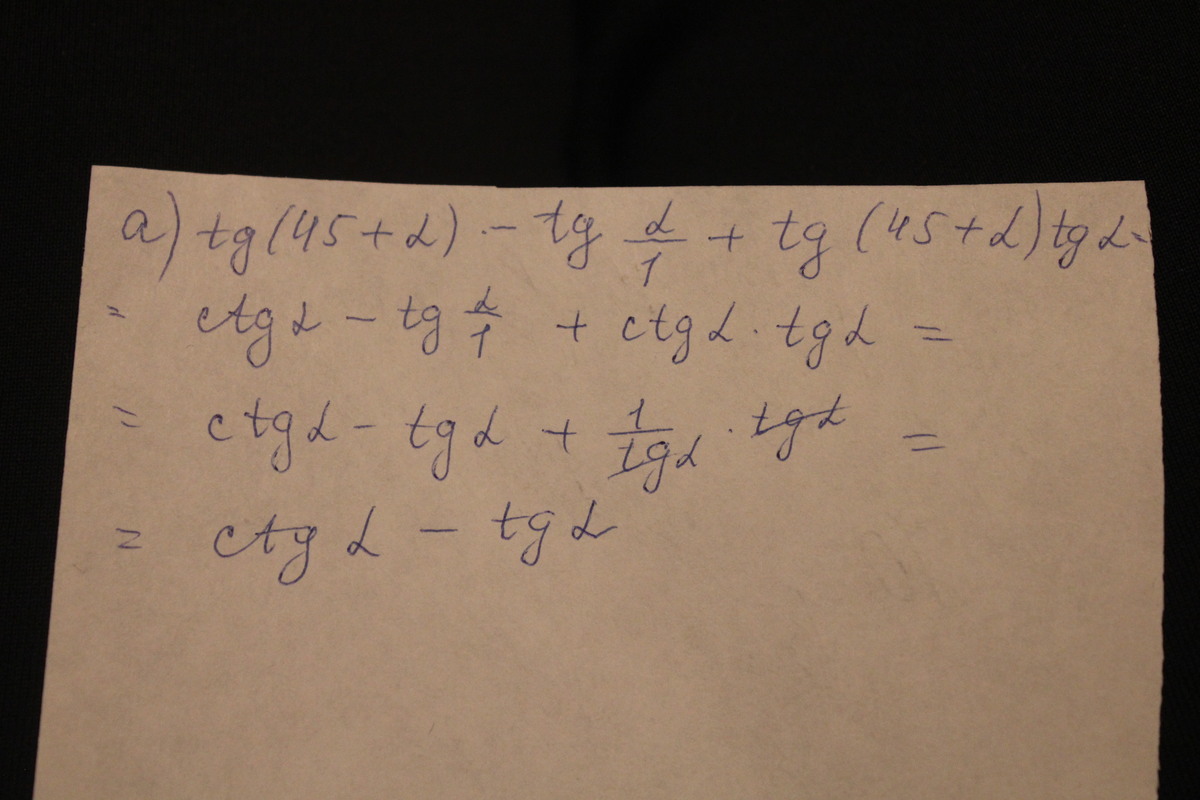 а) tg(45+α) - tg α/1 + tg (45+α)tg α=
= ctg α - tg α/1 + ctg α · tg α =
= ctg α - tg α + 1/tg α · tg α =
= ctg α - tg α